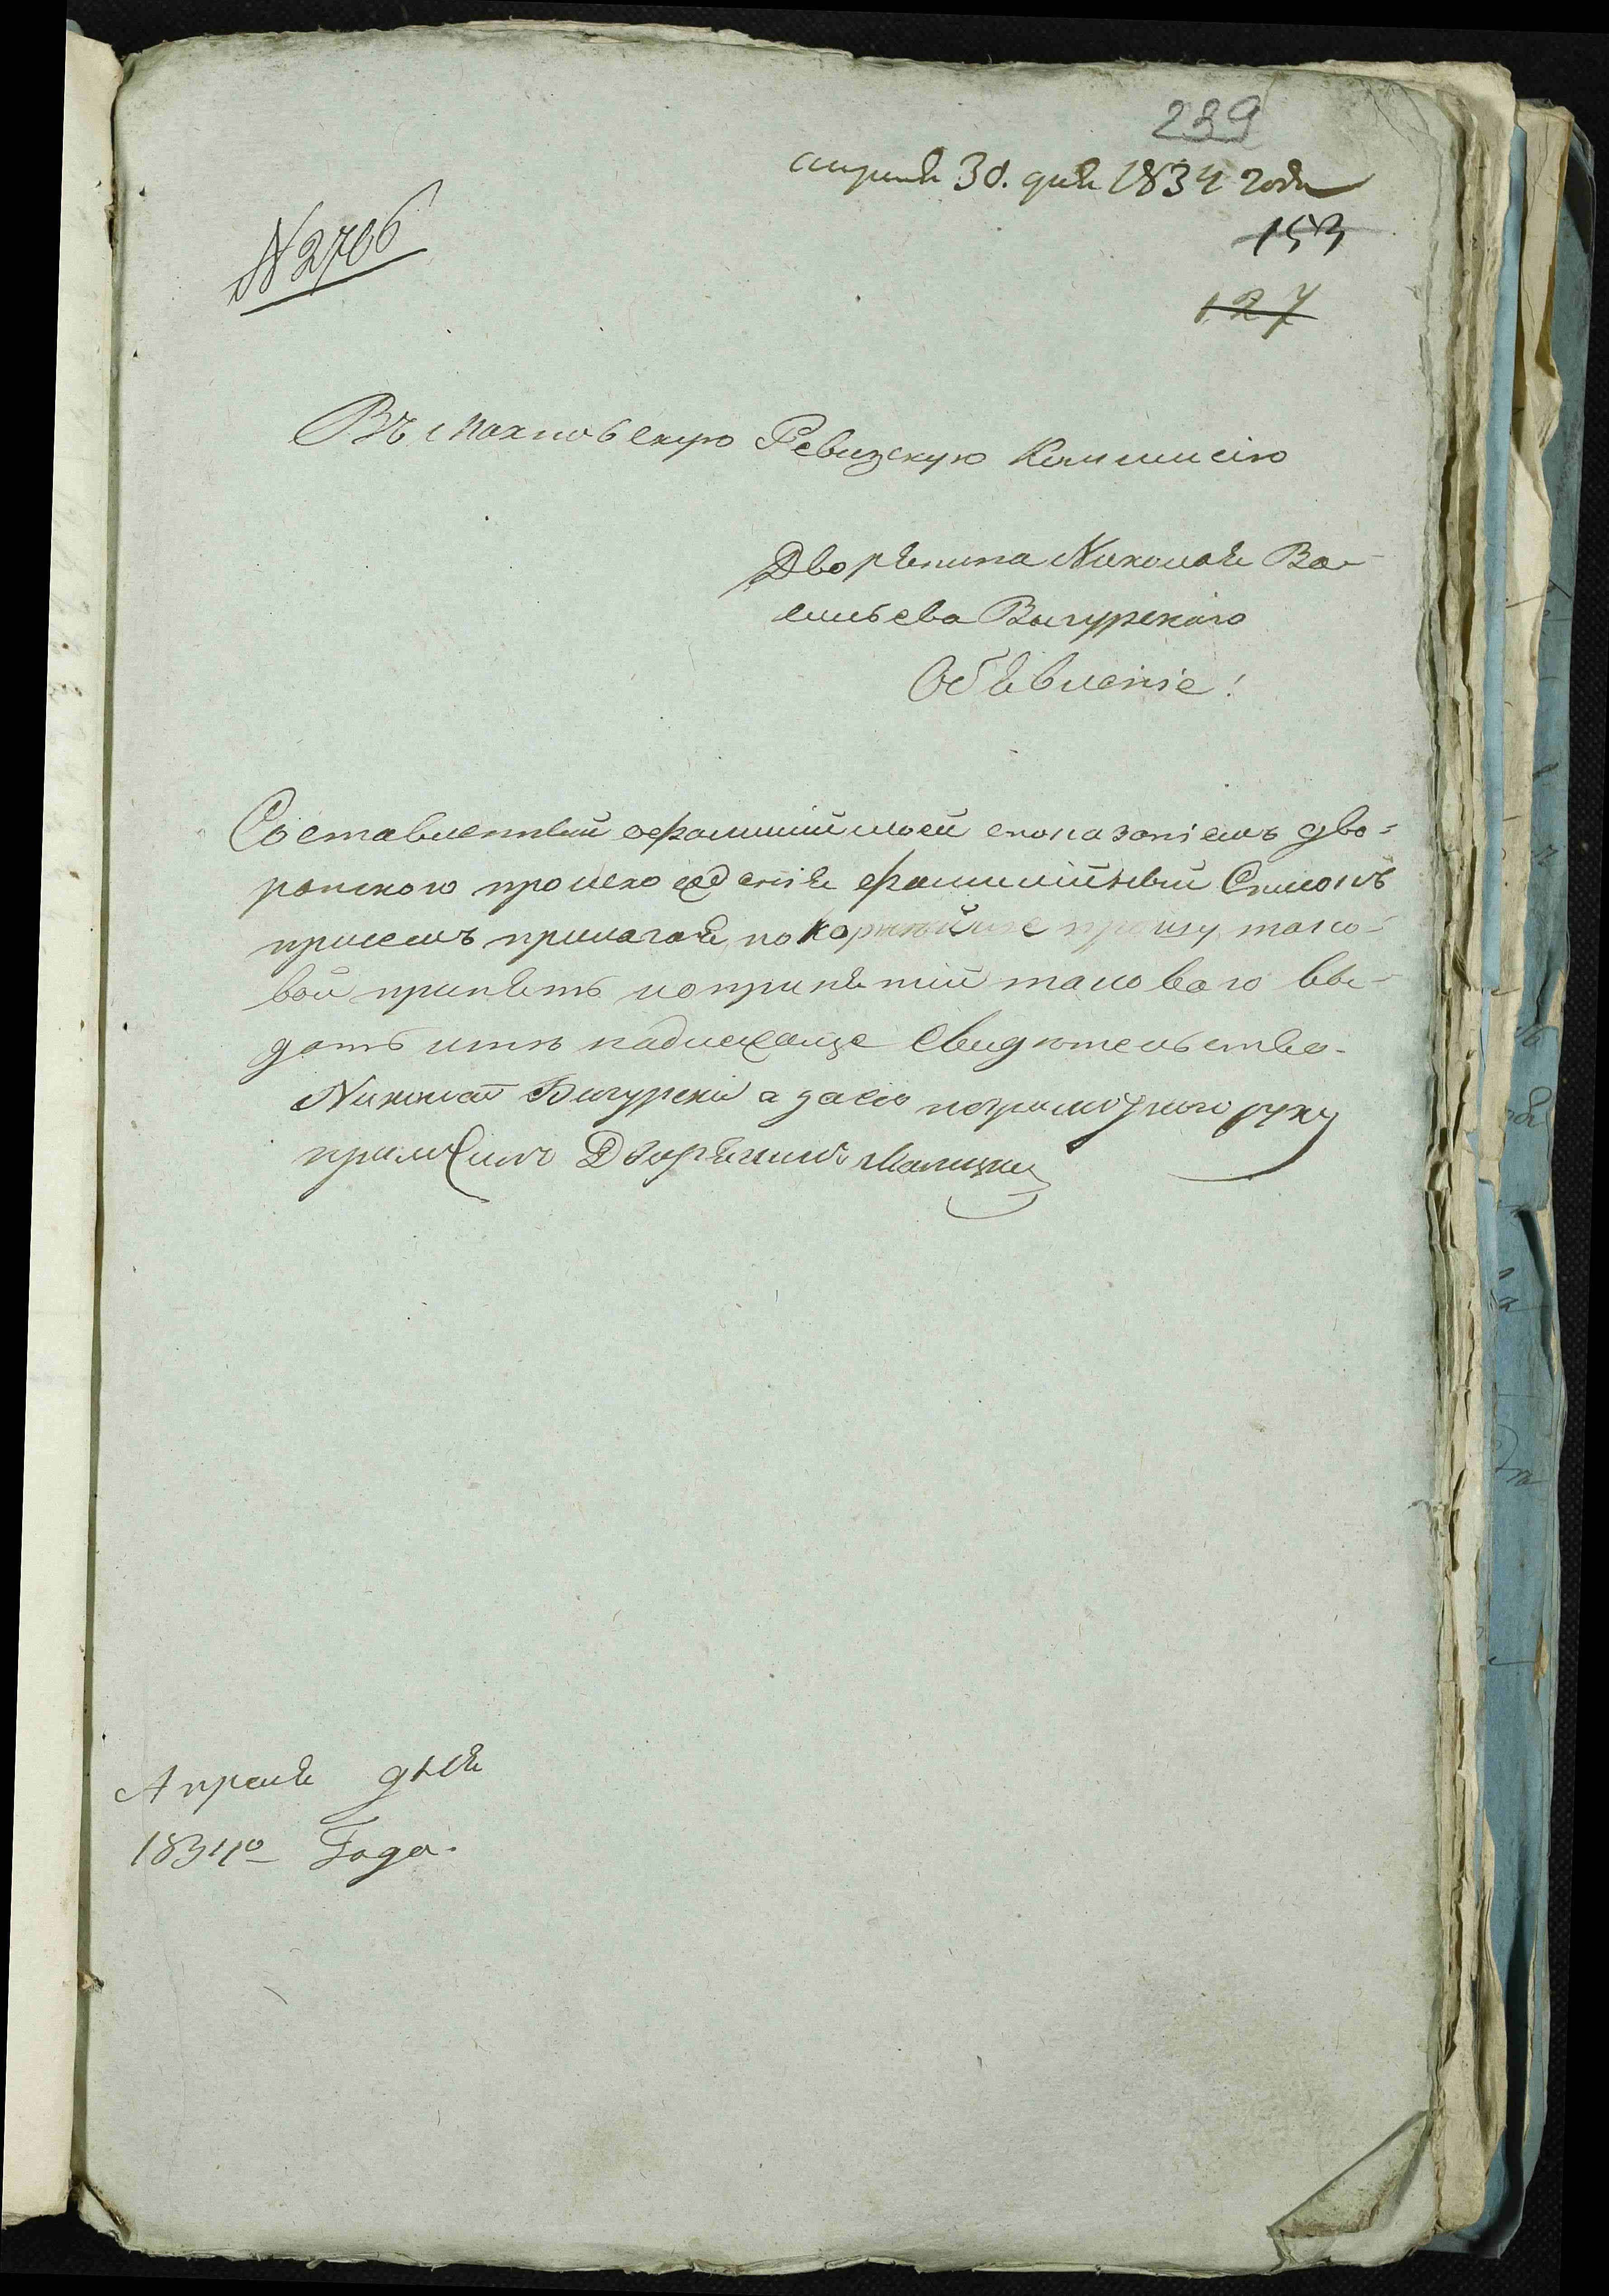 239
апреля 30. дня 1834 года
153
№ 2706
127
Въ Махновскую Ревизскую Коммисію
Дворянина Николая Ва-
сильева Вигурскаго
Объявленіе!
Составленный офамиліи моей споказаніемъ дво-
ранского происхожденія фамилійный Списокъ
присемъ прилагая покорнѣйше прошу тако-
вой принять ипопринятіи таковаго вы-
дать мнѣ надлежаще Свидѣтельство.
Николай Вигурскій а заево неграмотного руку
приложилъ Дворянинъ
Апреля дня
1834го Года.